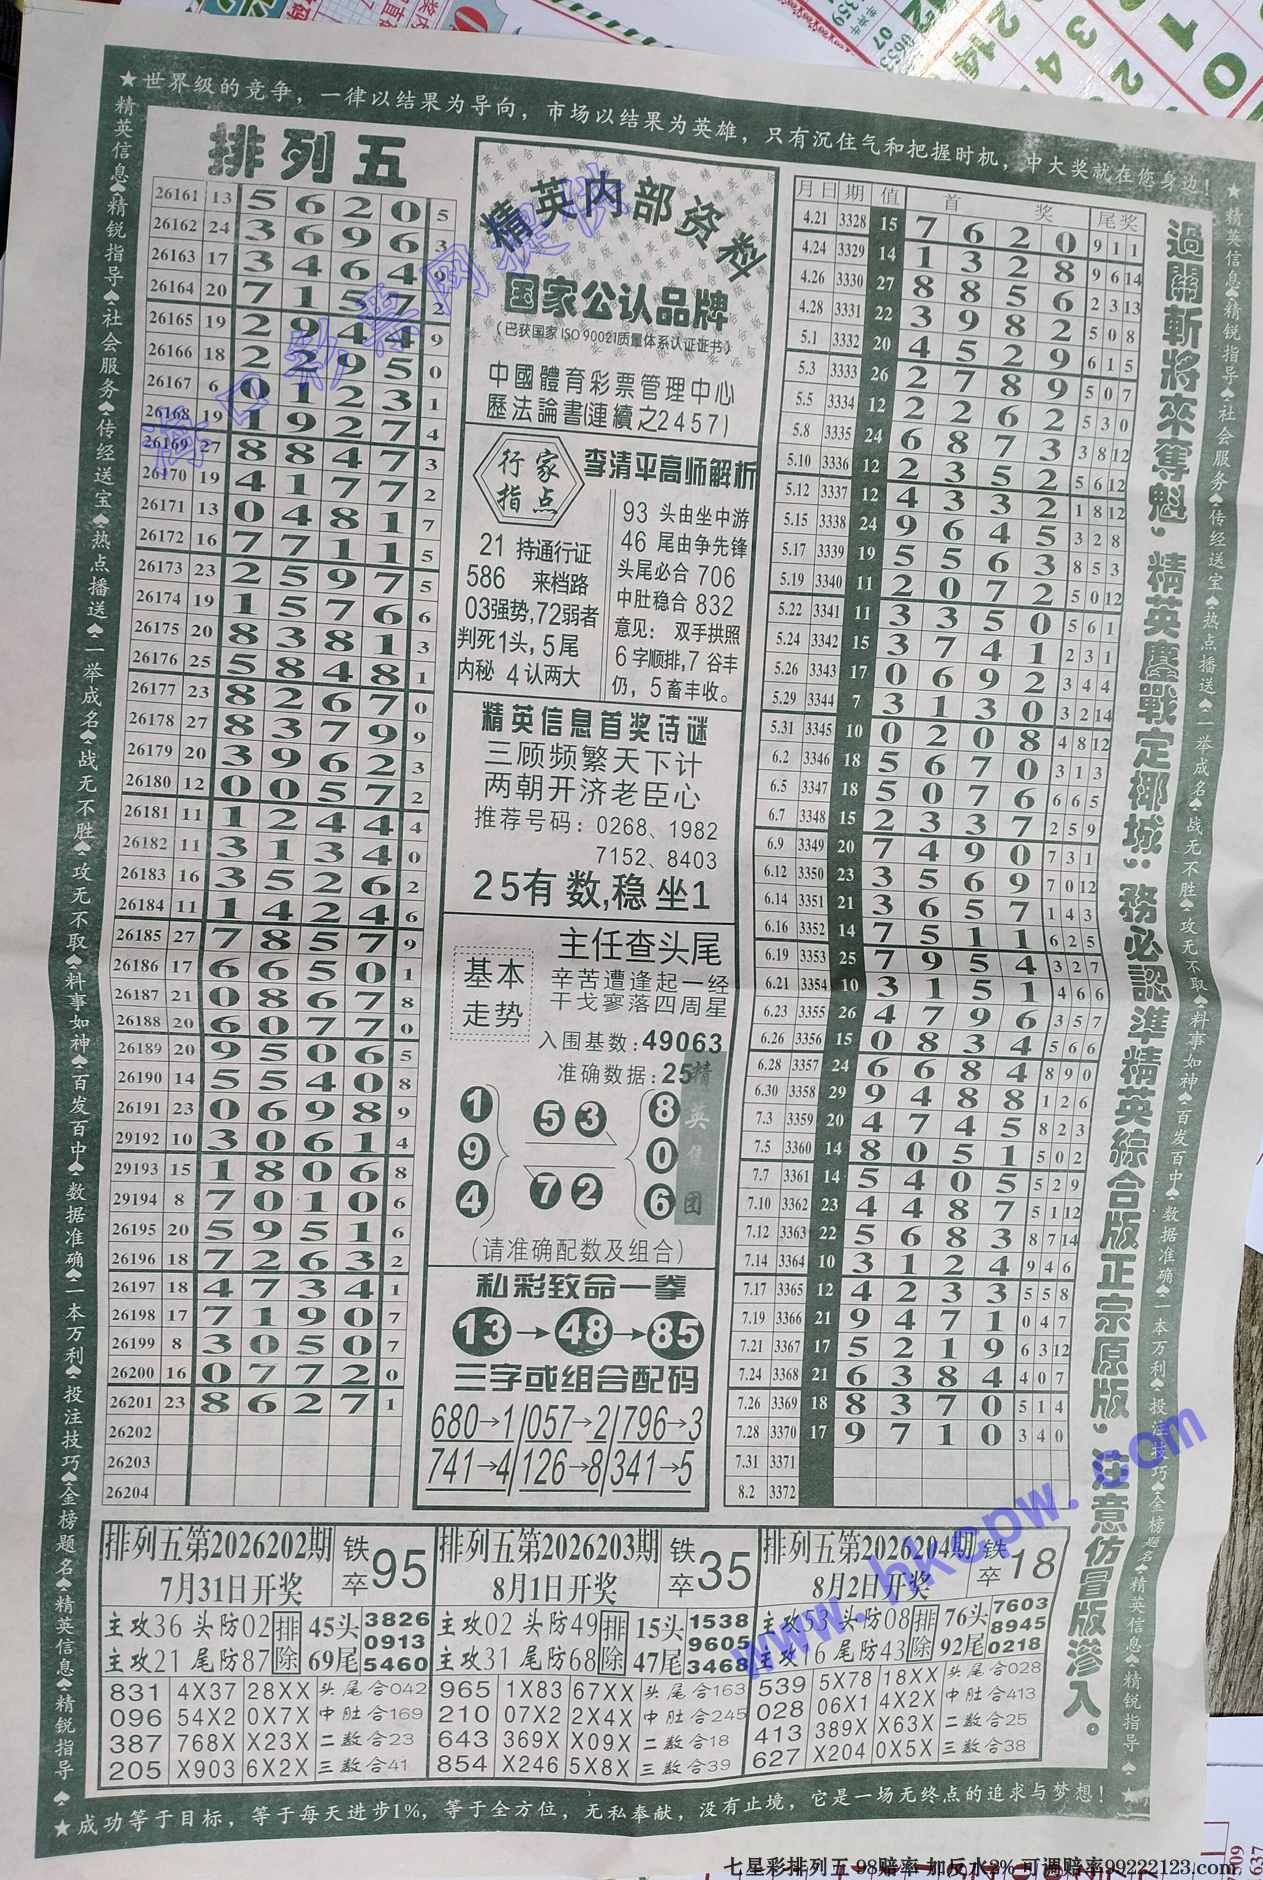 ★世界级的竞争，一律以结果为导向，市场以结果为英雄，只有沉住气和把握时机，中大奖就在您身边！
精英信息♠精锐指导♠社会服务♠传经送宝♠热点播送♠一举成名♠战无不胜♠攻无不取♠料事如神♠百发百中♠数据准确♠一本万利♠投注技巧♠金榜题名♠精英信息♠精锐指导♠
排列五
26161 13 5 6 2 0 5
26162 24 3 6 9 6 3
26163 17 3 4 6 4 9
26164 20 7 1 5 7 2
26165 19 2 9 4 4 9
26166 18 2 2 9 5 0
26167 6 0 1 2 3 1
26168 19 1 9 2 7 4
26169 27 8 8 4 7 3
26170 19 4 1 7 7 2
26171 13 0 4 8 1 7
26172 16 7 7 1 1 5
26173 23 2 5 9 7 5
26174 19 1 5 7 6 6
26175 20 8 3 8 1 3
26176 25 5 8 4 8 1
26177 23 8 2 6 7 0
26178 27 8 3 7 9 9
26179 20 3 9 6 2 3
26180 12 0 0 5 7 2
26181 11 1 2 4 4 4
26182 11 3 1 3 4 0
26183 16 3 5 2 6 2
26184 11 1 4 2 4 6
26185 27 7 8 5 7 9
26186 17 6 6 5 0 1
26187 21 0 8 6 7 8
26188 20 6 0 7 7 0
26189 20 9 5 0 6 5
26190 14 5 5 4 0 8
26191 23 0 6 9 8 9
29192 10 3 0 6 1 4
29193 15 1 8 0 6 8
29194 8 7 0 1 0 6
26195 20 5 9 5 1 6
26196 18 7 2 6 3 2
26197 18 4 7 3 4 1
26198 17 7 1 9 0 7
26199 8 3 0 5 0 7
26200 16 0 7 7 2 0
26201 23 8 6 2 7 1
26202
26203
26204
精英内部资料
国家公认品牌
(已获国家ISO 90021质量体系认证证书)
中國體育彩票管理中心
歷法論書(連續之2457)
行家指点
李清平高师解析
21 持通行证
586 来档路
03强势,72弱者
判死1头,5尾
内秘 4认两大
93 头由坐中游
46 尾由争先锋
头尾必合 706
中肚稳合 832
意见： 双手拱照
6字顺排,7谷丰
仍，5畜丰收。
精英信息首奖诗谜
三顾频繁天下计
两朝开济老臣心
推荐号码：0268、1982
7152、8403
25有数,稳坐1
基本走势
主任查头尾
辛苦遭逢起一经
干戈寥落四周星
入围基数:49063
准确数据:25
精英集团
1 9 4
5 3
7 2
8 0 6
(请准确配数及组合)
私彩致命一拳
13→48→85
三字或组合配码
680→1/057→2/796→3
741→4/126→8/341→5
月日 期 值 首 奖 尾奖
4.21 3328 15 7 6 2 0 9 1 1
4.24 3329 14 1 3 2 8 9 6 14
4.26 3330 27 8 8 5 6 2 3 13
4.28 3331 22 3 9 8 2 5 0 8
5.1 3332 20 4 5 2 9 6 1 5
5.3 3333 26 2 7 8 9 5 0 7
5.5 3334 12 2 2 6 2 5 3 0
5.8 3335 24 6 8 7 3 3 8 12
5.10 3336 12 2 3 5 2 5 6 12
5.12 3337 12 4 3 3 2 1 8 12
5.15 3338 24 9 6 4 5 3 2 8
5.17 3339 19 5 5 6 3 8 5 3
5.19 3340 11 2 0 7 2 5 0 12
5.22 3341 11 3 3 5 0 5 6 1
5.24 3342 15 3 7 4 1 2 3 1
5.26 3343 17 0 6 9 2 3 4 4
5.29 3344 7 3 1 3 0 3 2 14
5.31 3345 10 0 2 0 8 4 8 12
6.2 3346 18 5 6 7 0 3 1 3
6.5 3347 18 5 0 7 6 6 6 5
6.7 3348 15 2 3 3 7 2 5 9
6.9 3349 20 7 4 9 0 7 3 1
6.12 3350 23 3 5 6 9 7 0 12
6.14 3351 21 3 6 5 7 1 4 3
6.16 3352 14 7 5 1 1 6 2 5
6.19 3353 25 7 9 5 4 3 2 7
6.21 3354 10 3 1 5 1 4 6 6
6.23 3355 26 4 7 9 6 3 5 7
6.26 3356 15 0 8 3 4 5 6 6
6.28 3357 24 6 6 8 4 8 9 0
6.30 3358 29 9 4 8 8 1 2 6
7.3 3359 20 4 7 4 5 8 2 3
7.5 3360 14 8 0 5 1 5 0 2
7.7 3361 14 5 4 0 5 5 2 9
7.10 3362 23 4 4 8 7 5 1 12
7.12 3363 22 5 6 8 3 8 7 14
7.14 3364 10 3 1 2 4 9 4 6
7.17 3365 12 4 2 3 3 5 5 8
7.19 3366 21 9 4 7 1 0 4 7
7.21 3367 17 5 2 1 9 6 3 12
7.24 3368 21 6 3 8 4 4 0 7
7.26 3369 18 8 3 7 0 5 1 4
7.28 3370 17 9 7 1 0 3 4 0
7.31 3371
8.2 3372
過關斬將來奪魁，精英鏖戰定椰城；務必認準精英綜合版正宗原版，注意仿冒版滲入。
★精英信息♠精锐指导♠社会服务♠传经送宝♠热点播送♠一举成名♠战无不胜♠攻无不取♠料事如神♠百发百中♠数据准确♠一本万利♠投注技巧♠金榜题名♠精英信息♠精锐指导♠★
排列五第2026202期 铁卒95
7月31日开奖
主攻36 头防02 排除 45头 3826
主攻21 尾防87 69尾 0913
5460
831 4X37 28XX 头尾合042
096 54X2 0X7X 中肚合169
387 768X X23X 二数合23
205 X903 6X2X 三数合41
排列五第2026203期 铁卒35
8月1日开奖
主攻02 头防49 排除 15头 1538
主攻31 尾防68 47尾 9605
3468
965 1X83 67XX 头尾合163
210 07X2 2X4X 中肚合245
643 369X X09X 二数合18
854 X246 5X8X 三数合39
排列五第2026204期 铁卒18
8月2日开奖
主攻53 头防08 排除 76头 7603
主攻16 尾防43 92尾 8945
0218
539 5X78 18XX 头尾合028
028 06X1 4X2X 中肚合413
413 389X X63X 二数合25
627 X204 0X5X 三数合38
★成功等于目标，等于每天进步1%，等于全方位，无私奉献，没有止境，它是一场无终点的追求与梦想！
www.hkcpw.com
七星彩排列五 98赔率 加反水2% 可调赔率99222123.com